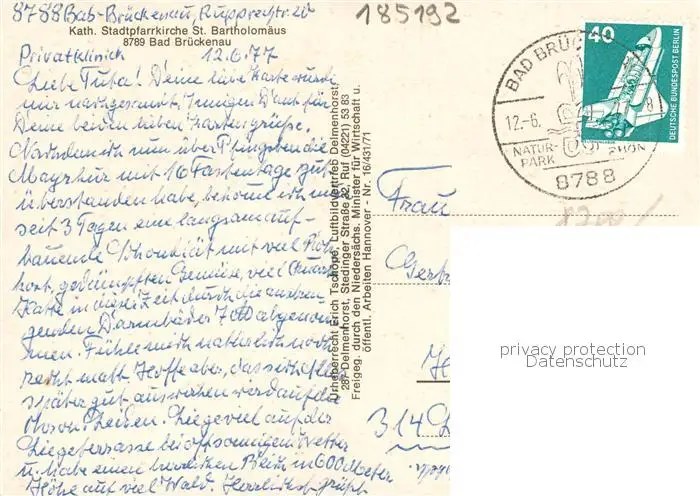 8788 Bad-Brückenau, Rupprechtstr. 20
Kath. Stadtpfarrkirche St. Bartholomäus
8789 Bad Brückenau
Privatklinik 12.6.77
Liebe Tuta! Deine liebe Karte wurde
mir nachgesandt. Innigen Dank für
Deine beiden lieben Kartengrüße.
Nachdem ich nun über Pfingsten die
Mayrkur mit 16 Fastentage gut
überstanden habe, bekomme ich nun
seit 3 Tagen eine langsam auf-
bauende Schondiät mit viel Roh-
kost, gedämpften Gemüse, viel Quark.
Hatte in dieser Zeit durch die anstren-
genden Darmbäder 7 abgenom-
men. Fühle mich natürlich noch
recht matt. Hoffe aber, dass sich alles
später gut auswirken wird auf die
Leiden. Liege viel auf der
Liegeterrasse bei offsonnigem Wetter
u. habe einen herrlichen Blick in 600 Meter
Höhe auf viel Wald. Herzlichst grüßt
Urheberrecht Erich Tschöpe, Luftbildvertrieb Delmenhorst,
287 Delmenhorst, Stedinger Straße 82, Ruf (04221) 53 83
Freigeg. durch den Niedersächs. Minister für Wirtschaft u.
öffentl. Arbeiten Hannover - Nr. 16/431/71
185192
BAD BRÜC
12.-6.
NATUR-
PARK
RHÖN
8788
40
DEUTSCHE BUNDESPOST BERLIN
Frau
314
privacy protection
Datenschutz